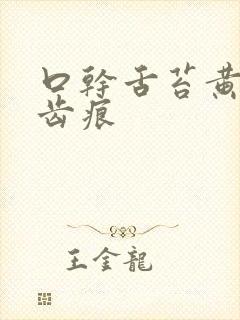 口幹舌苔黄
齿痕
王金龍